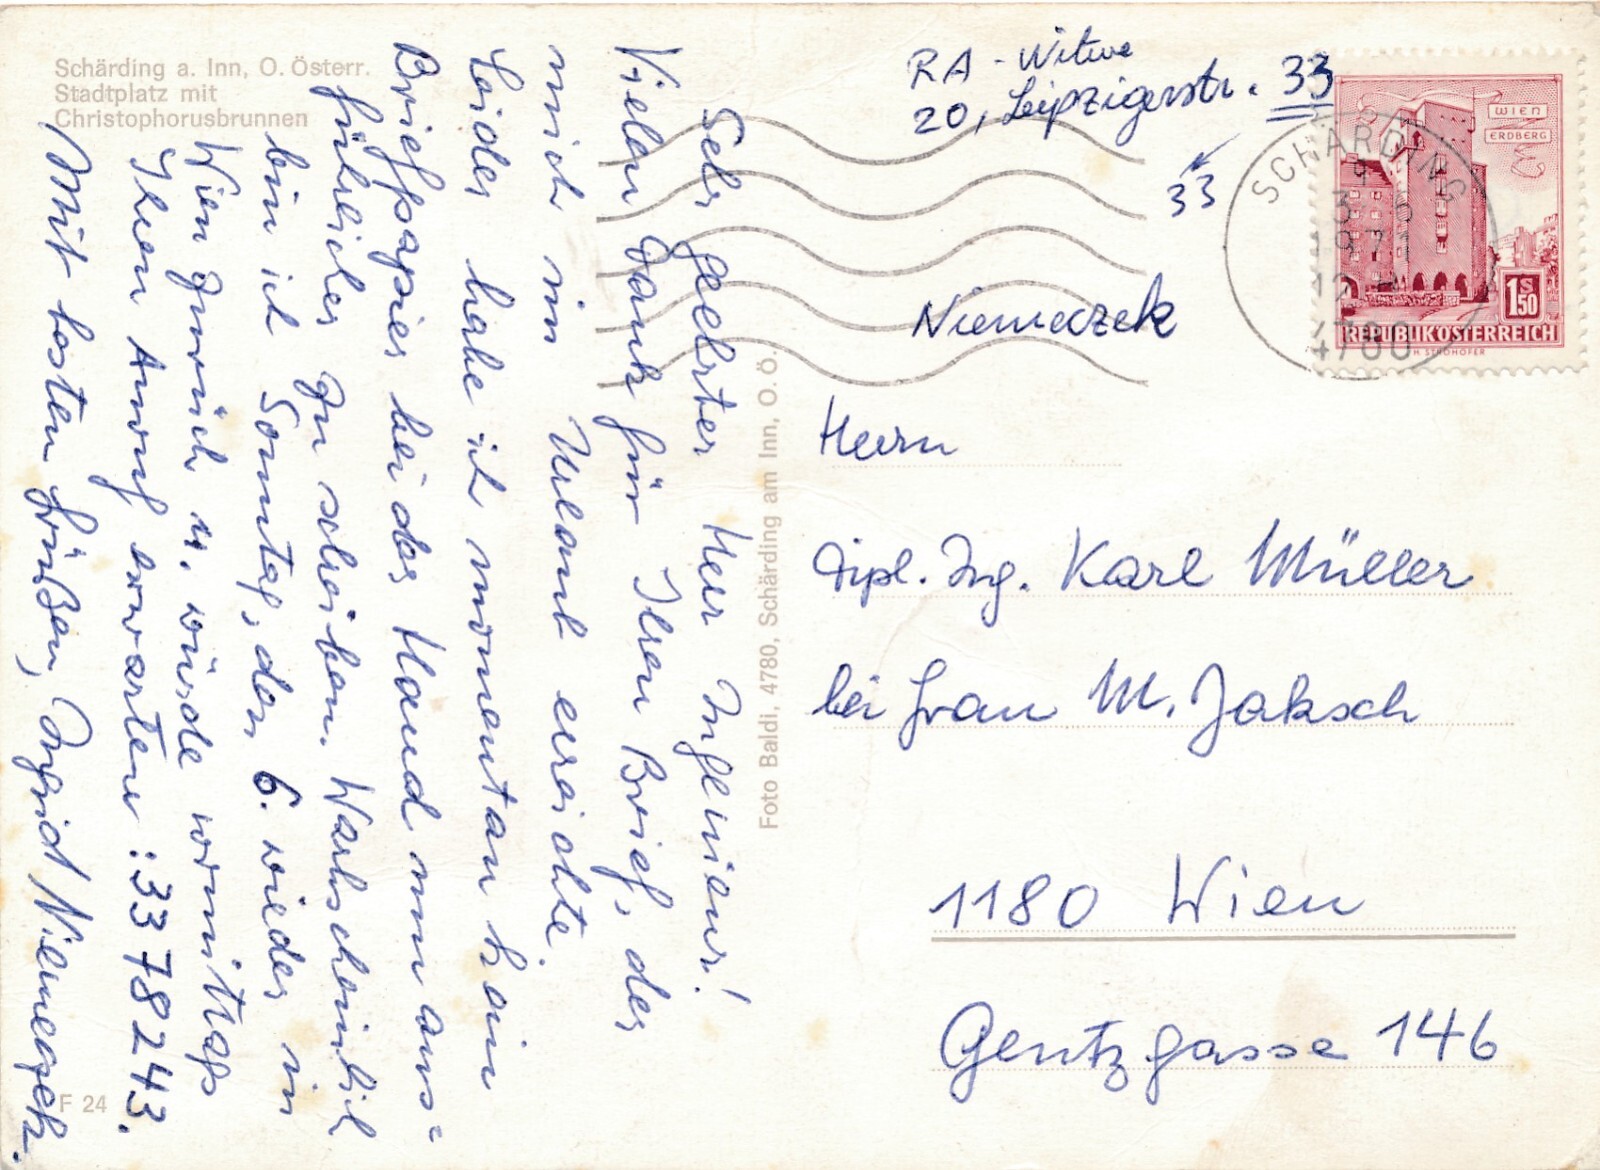 Schärding a. Inn, O. Österr.
Stadtplatz mit
Christophorusbrunnen
Sehr geehrter Herr Ingenieur!
Vielen Dank für Ihren Brief, der
mich im Urlaub erreichte.
Leider habe ich momentan kein
Briefpapier bei der Hand um aus=
führlicher zu schreiben. Warscheinlich
bin ich Sonntag, den 6. wieder in
Wien zurück u. würde vormittags
Ihren Anruf erwarten: 33 78 243.
Mit besten Grüßen, Ingrid Niemeczek.
F 24
Foto Baldi, 4780, Schärding am Inn, O. Ö.
RA - Witwe
20, Leipzigerstr. 33
33
Niemeczek
WIEN
ERDBERG
1 S 50
REPUBLIK ÖSTERREICH
H. STROHOFER
SCHÄRDING
3 6
1971
12
4780
Herrn
Dipl. Ing. Karl Müller
bei Frau M. Jaksch
1180 Wien
Gentzgasse 146